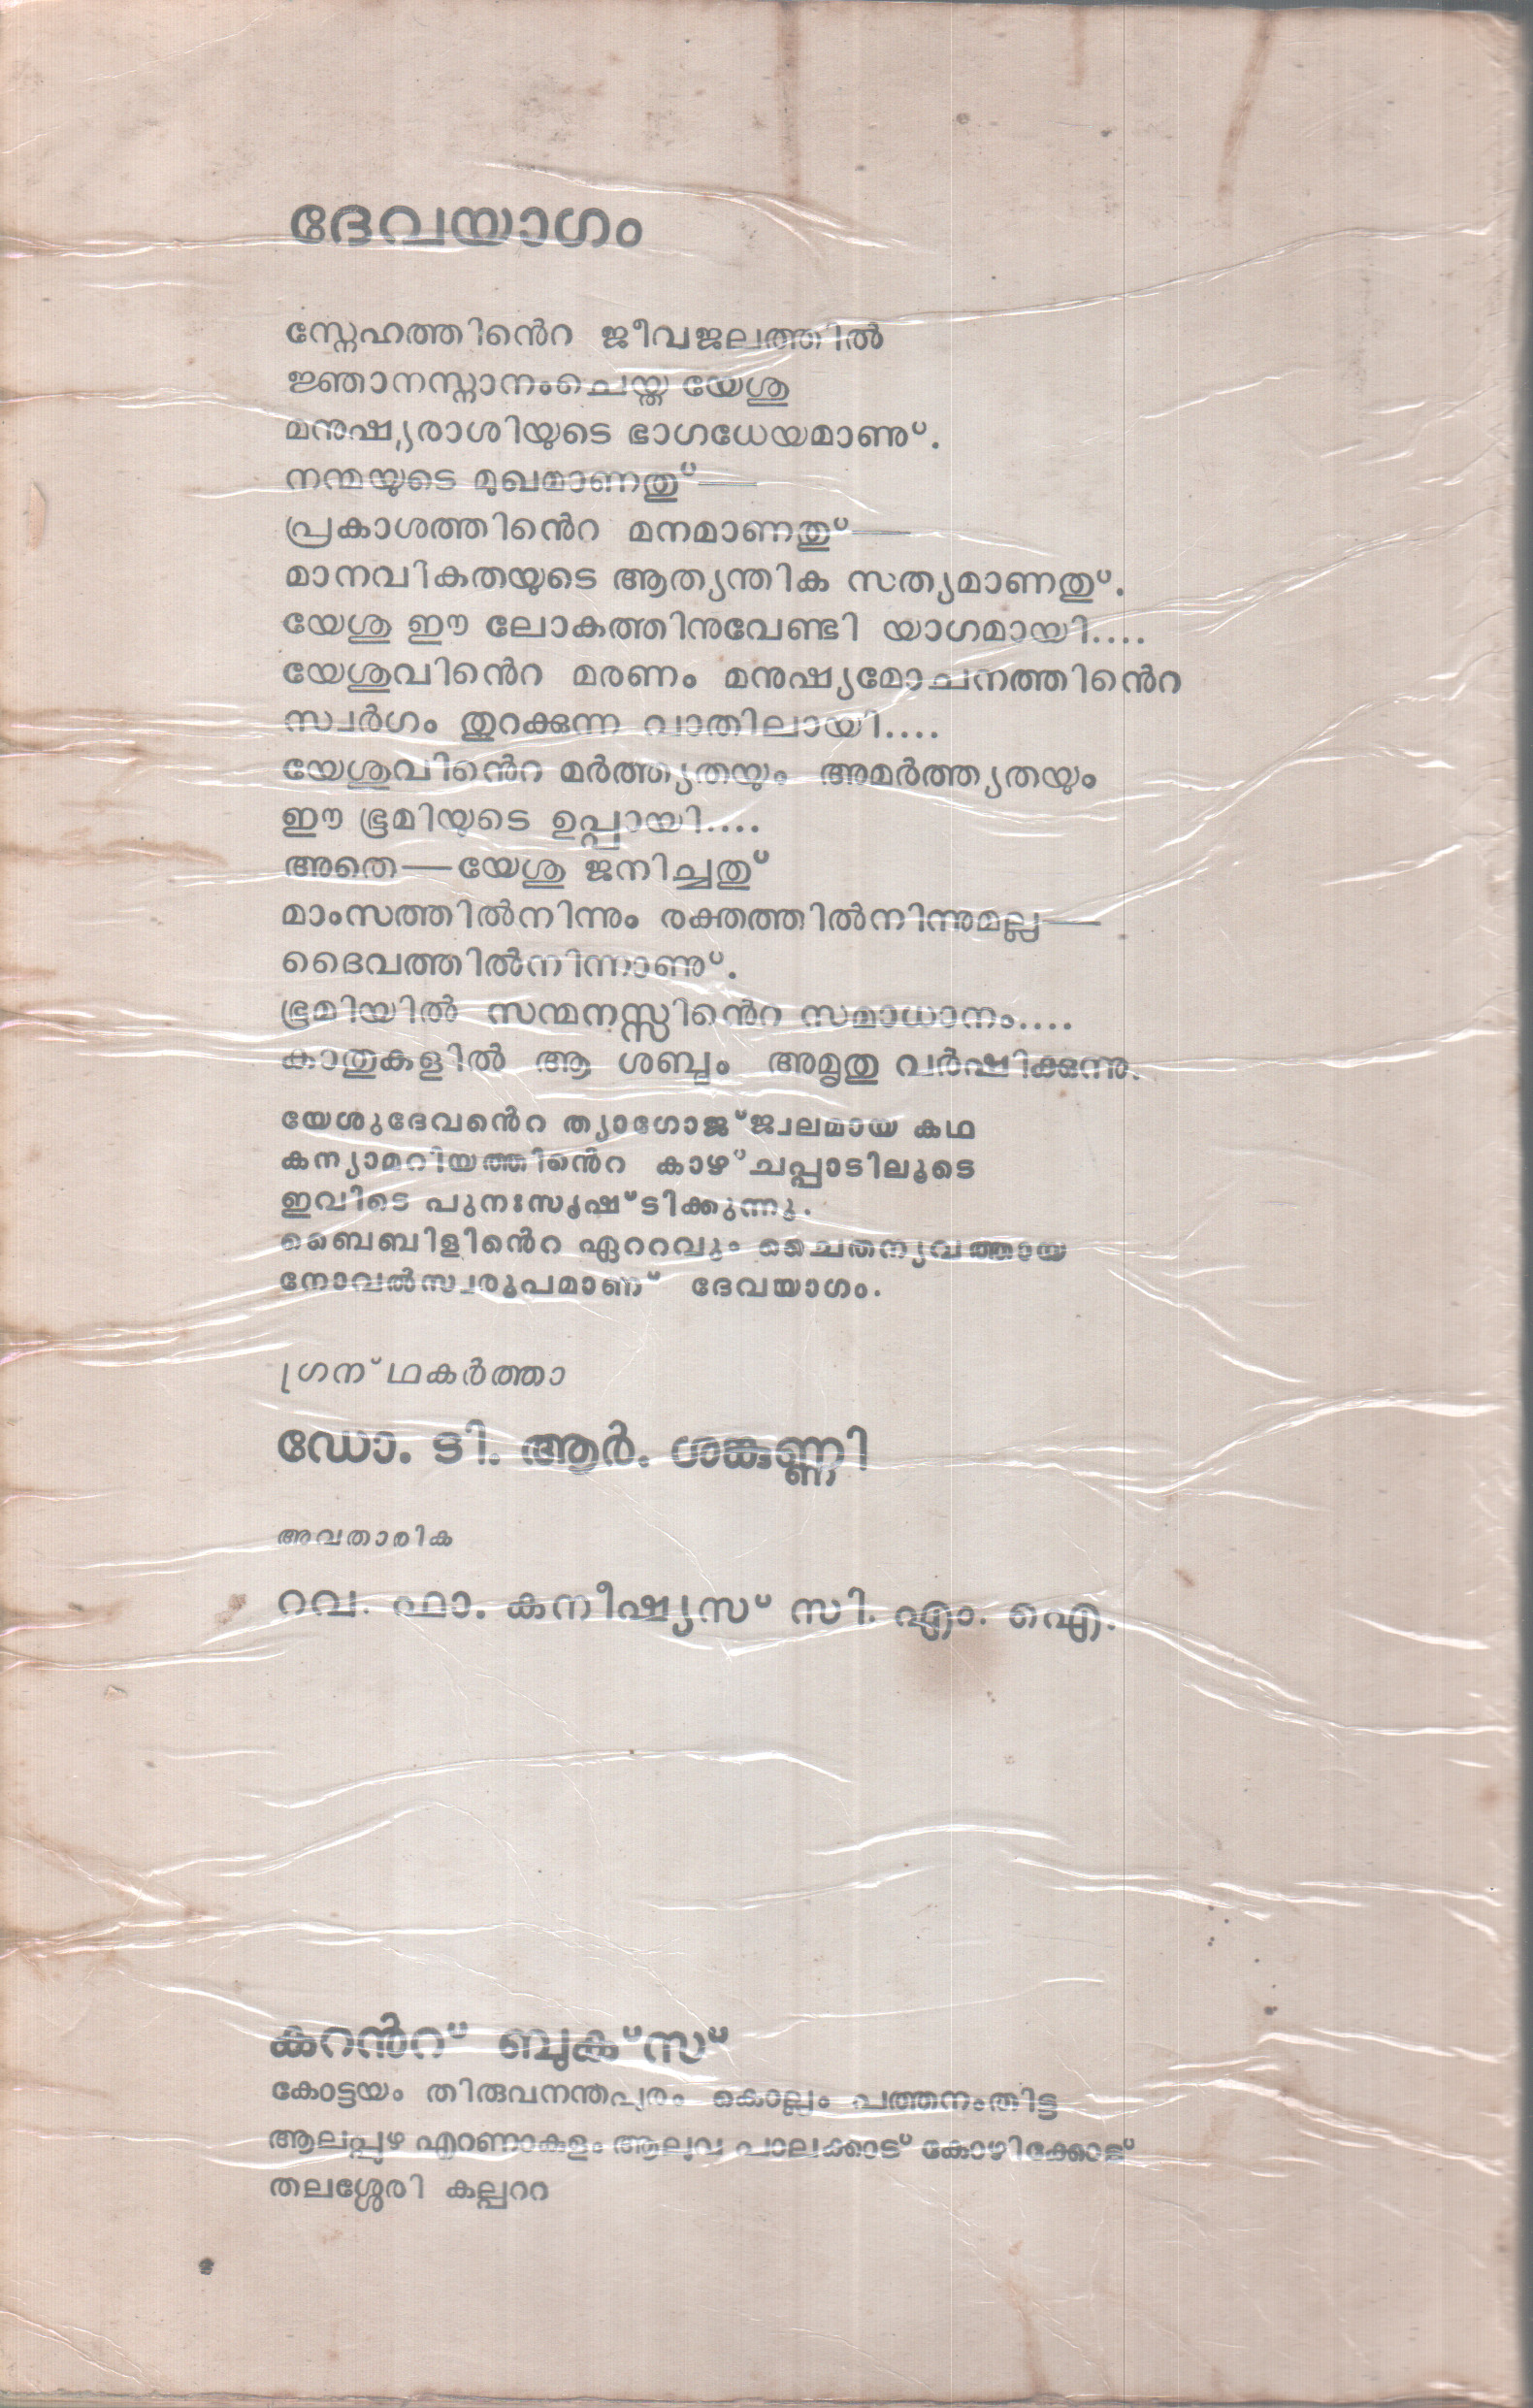 ദേവയാഗം
സ്നേഹത്തിൻെറ ജീവജലത്തിൽ
ജ്ഞാനസ്നാനംചെയ്ത യേശു
മനുഷ്യരാശിയുടെ ഭാഗധേയമാണു്.
നന്മയുടെ മുഖമാണതു്—
പ്രകാശത്തിൻെറ മനമാണതു്—
മാനവികതയുടെ ആത്യന്തിക സത്യമാണതു്.
യേശു ഈ ലോകത്തിനുവേണ്ടി യാഗമായി....
യേശുവിൻെറ മരണം മനുഷ്യമോചനത്തിൻെറ
സ്വർഗം തുറക്കുന്ന വാതിലായി....
യേശുവിൻെറ മർത്ത്യതയും അമർത്ത്യതയും
ഈ ഭൂമിയുടെ ഉപ്പായി....
അതെ—യേശു ജനിച്ചതു്
മാംസത്തിൽനിന്നും രക്തത്തിൽനിന്നുമല്ല—
ദൈവത്തിൽനിന്നാണു്.
ഭൂമിയിൽ സന്മനസ്സിൻെറ സമാധാനം....
കാതുകളിൽ ആ ശബ്ദം അമൃതു വർഷിക്കുന്നു.
യേശുദേവൻെറ ത്യാഗോജ്ജ്വലമായ കഥ
കന്യാമറിയത്തിൻെറ കാഴ്ചപ്പാടിലൂടെ
ഇവിടെ പുനഃസൃഷ്ടിക്കുന്നു.
ബൈബിളിൻെറ ഏററവും ചൈതന്യവത്തായ
നോവൽസ്വരൂപമാണ് ദേവയാഗം.
ഗ്രന്ഥകർത്താ
ഡോ. ടി. ആർ. ശങ്കുണ്ണി
അവതാരിക
റവ. ഫാ. കനീഷ്യസ് സി. എം. ഐ.
കറൻറ് ബുക്സ്
കോട്ടയം തിരുവനന്തപുരം കൊല്ലം പത്തനംതിട്ട
ആലപ്പുഴ എറണാകുളം ആലുവ പാലക്കാട് കോഴിക്കോട്
തലശ്ശേരി കല്പററ